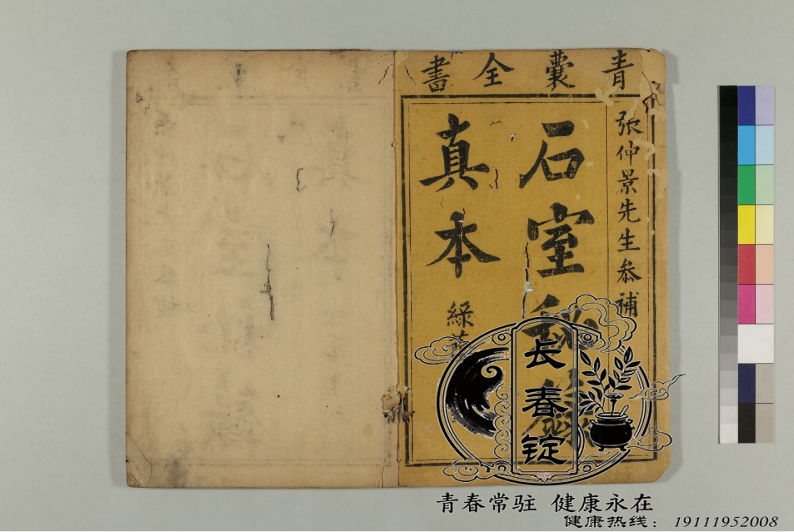 青囊全書
張仲景先生叅補
石室秘錄
真本
綠
长春锭
青春常驻 健康永在
健康热线：19111952008